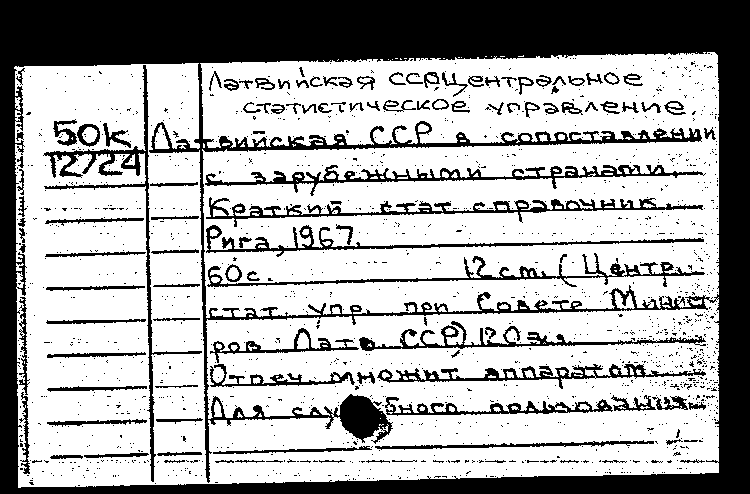 Латвийская ССР Центральное
статистическое управление.
50К Латвийская ССР в сопоставлении
12724 с зарубежными странами.
Краткий стат справочник.
Рига, 1967.
60с. 12 см. (Центр.
стат. упр. при Совете Минист
ров Латв. ССР) 120 экз.
Отпеч. множит. аппаратом.
Для служебного пользования.